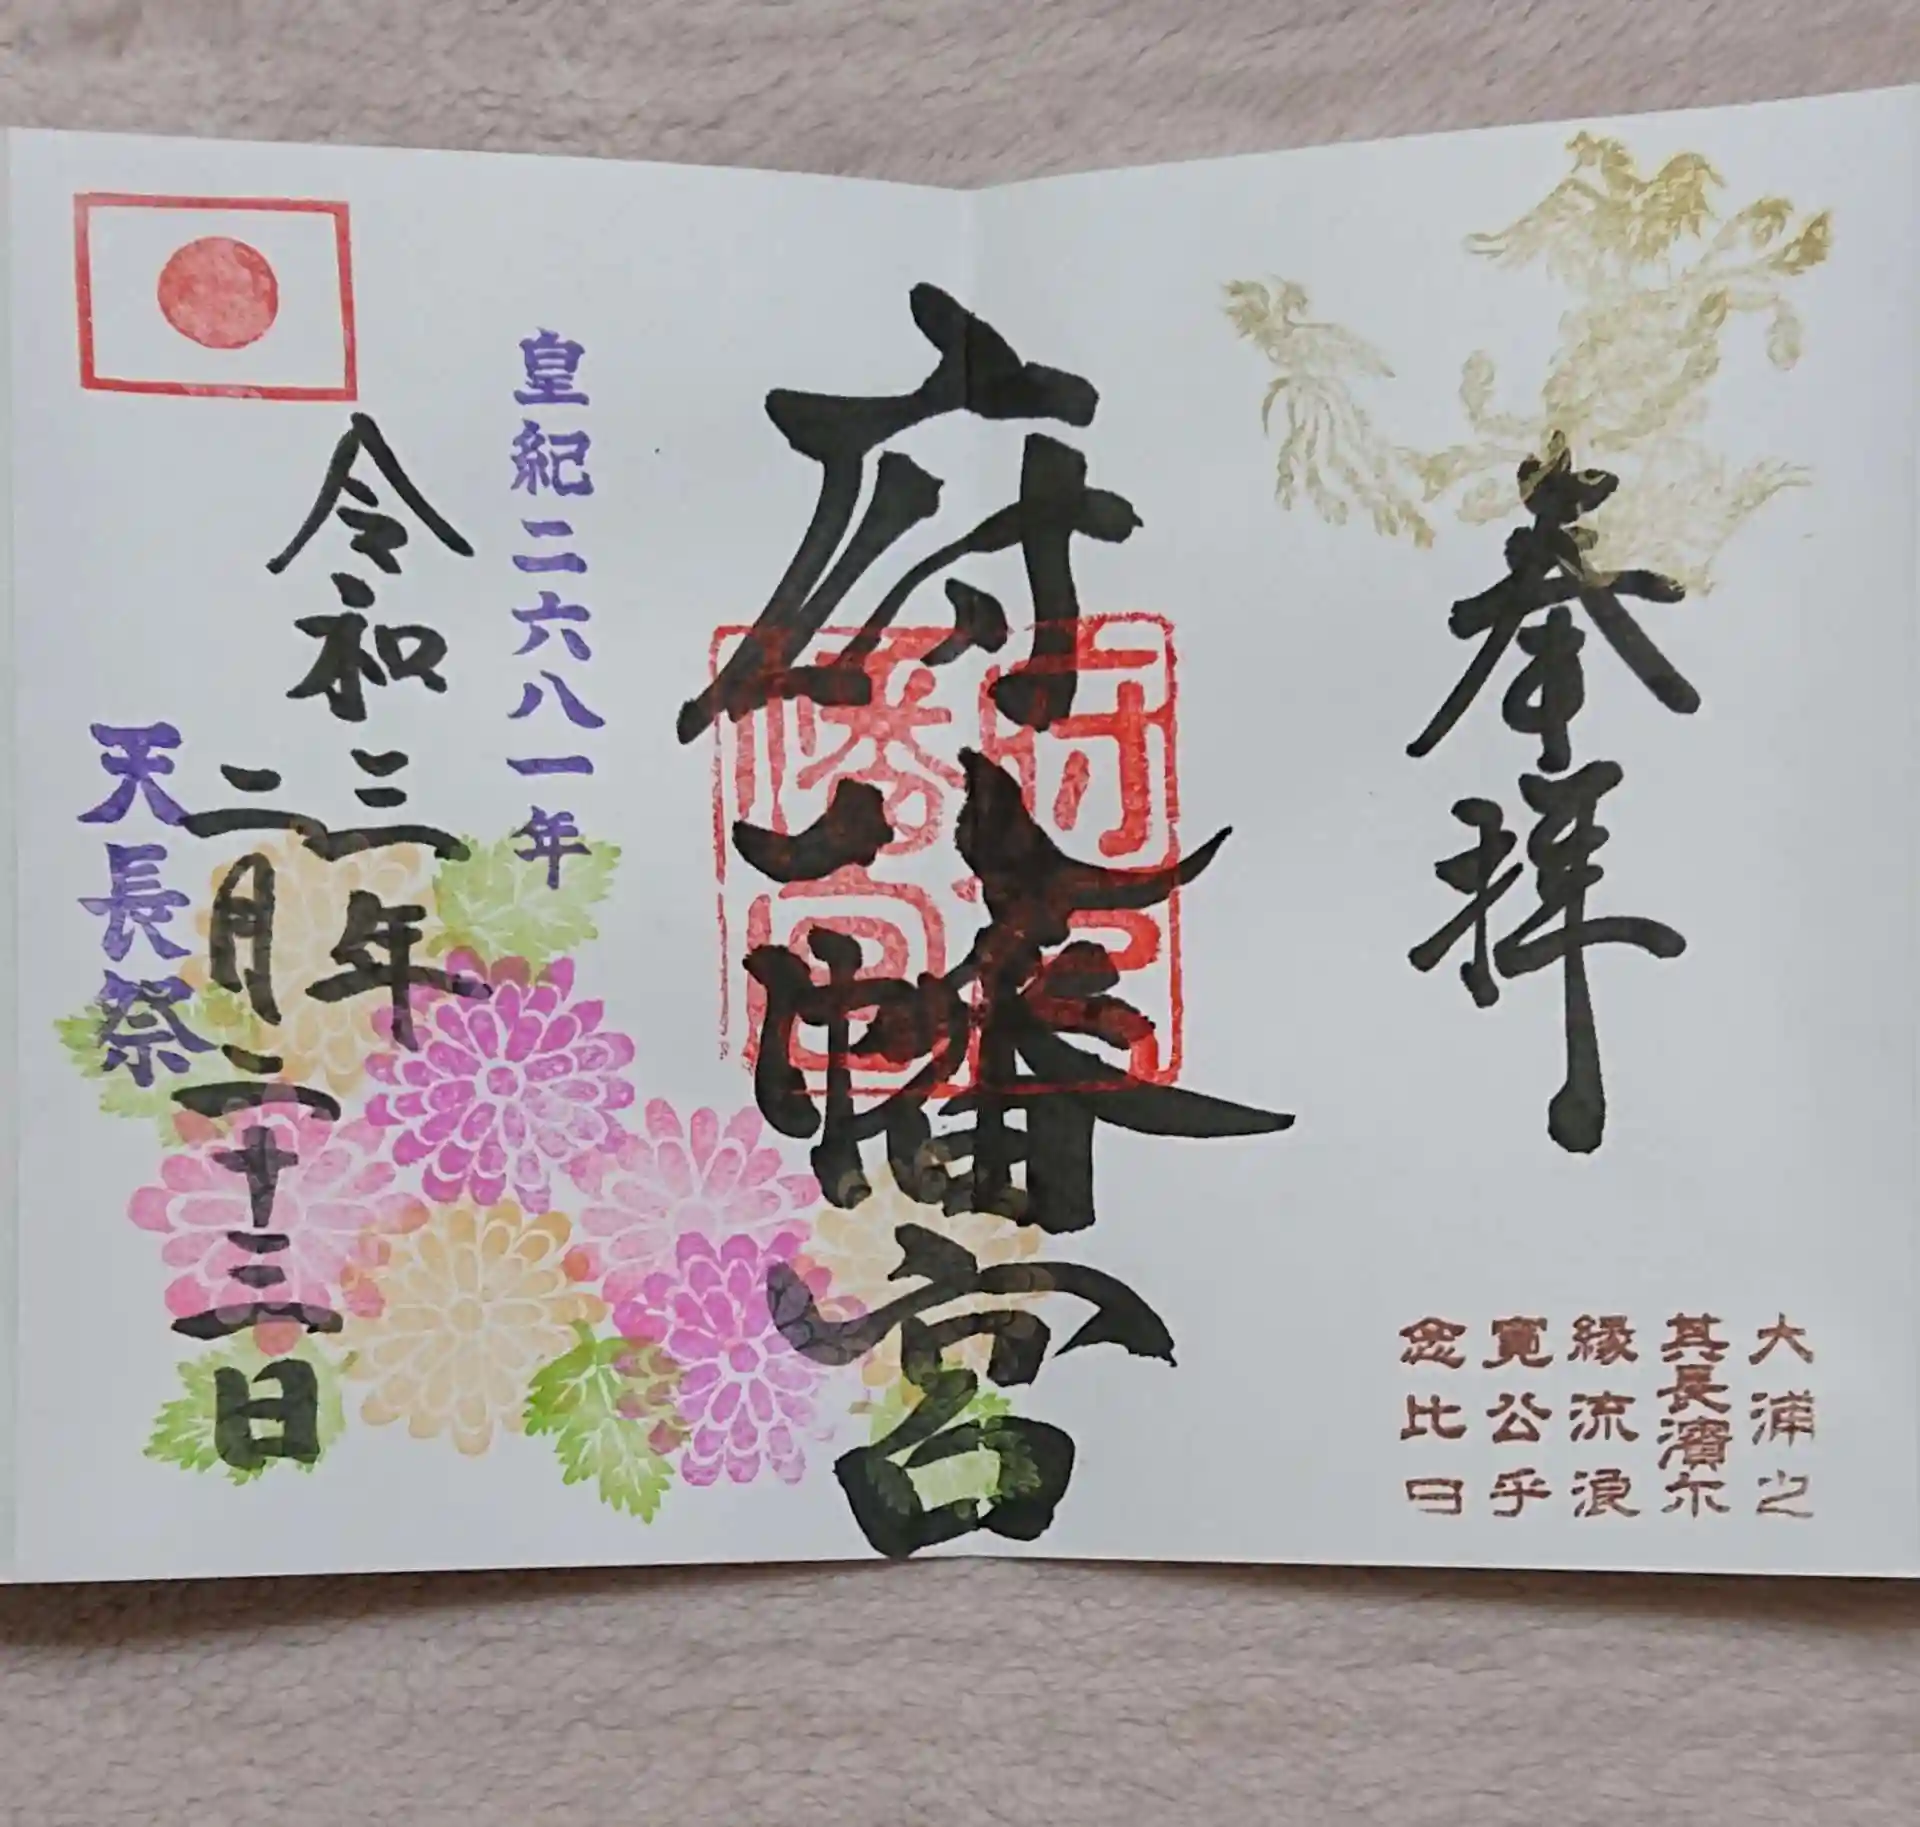 奉拝
大浦之
其長濱尓
縁流浪
寛公乎
念比日
府八幡宮
府八幡宮
皇紀二六八一年
令和三年
二月二十三日
天長祭